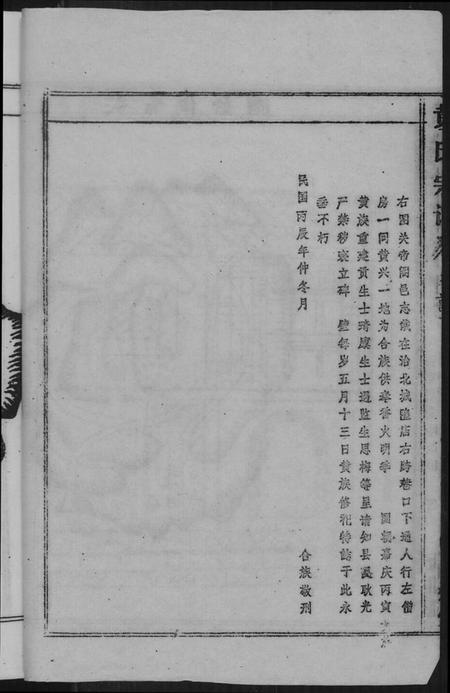 黄氏宗谱
右图关帝阁邑志载在治北城隍店右跨巷口下通人行左僧
房一间黄兴一地为合族供奉香火明季 国朝嘉庆丙寅
黄族重建贡生士琦廪生士选监生思梅等呈请知县吴耿光
严禁秽亵立碑 壁每岁五月十三日黄族修祀特志于此永
垂不朽
民国丙辰年仲冬月
合族敬刊